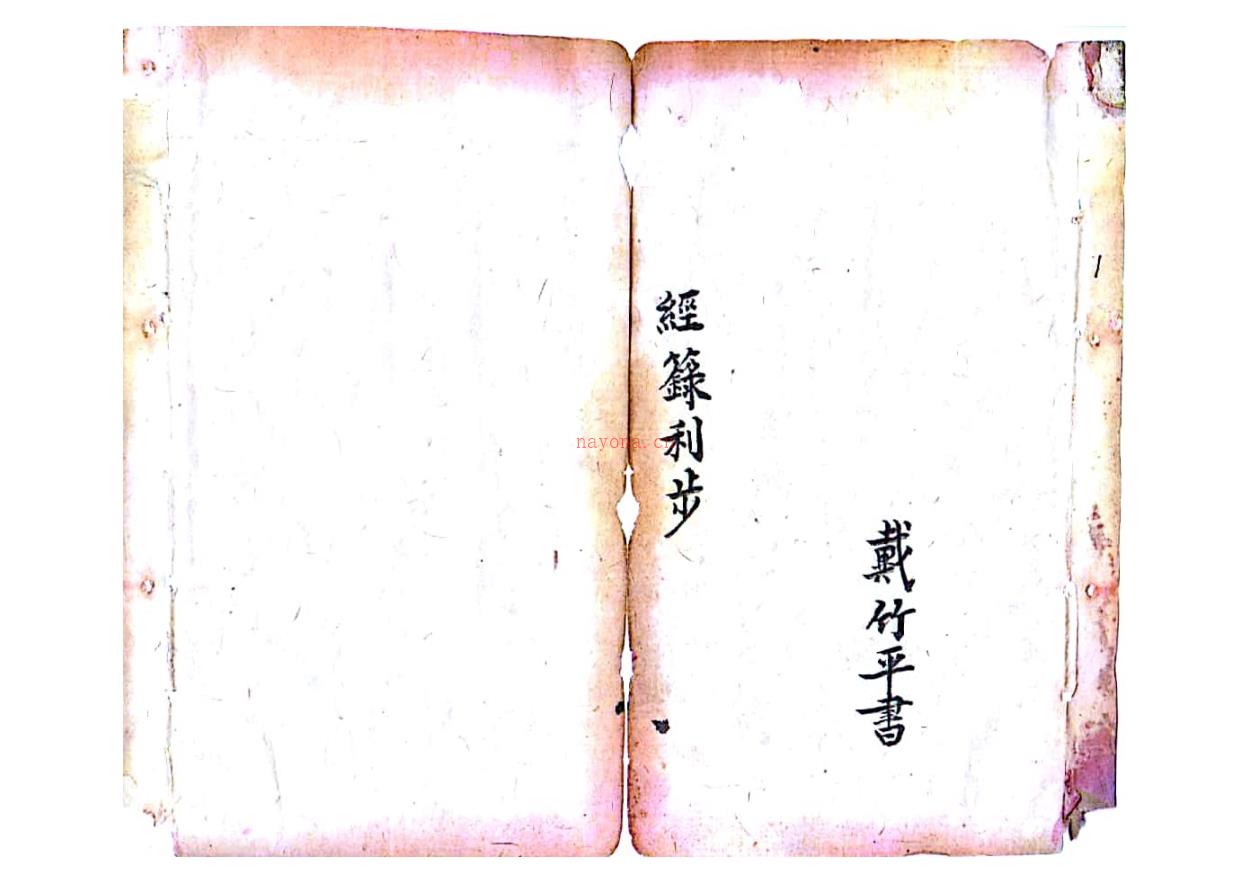 戴竹平書
經籙利步
1
nayona.cn